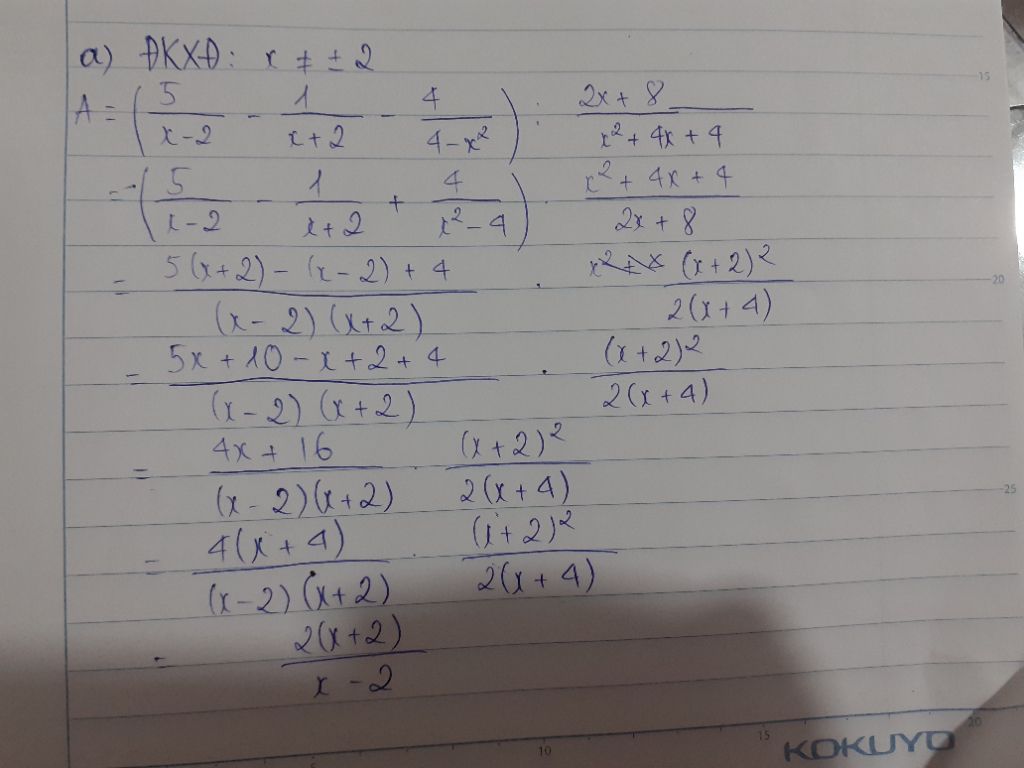 a) ĐKXĐ: x ≠ ± 2
A = (5/(x-2) - 1/(x+2) - 4/(4-x²)) : (2x+8)/(x²+4x+4)
= (5/(x-2) - 1/(x+2) + 4/(x²-4)) . (x²+4x+4)/(2x+8)
= (5(x+2)-(x-2)+4)/((x-2)(x+2)) . (x+2)²/(2(x+4))
= (5x+10-x+2+4)/((x-2)(x+2)) . (x+2)²/(2(x+4))
= (4x+16)/((x-2)(x+2)) . (x+2)²/(2(x+4))
= (4(x+4))/((x-2)(x+2)) . (x+2)²/(2(x+4))
= (2(x+2))/(x-2)
15
20
25
5
10
15
20
KOKUYO